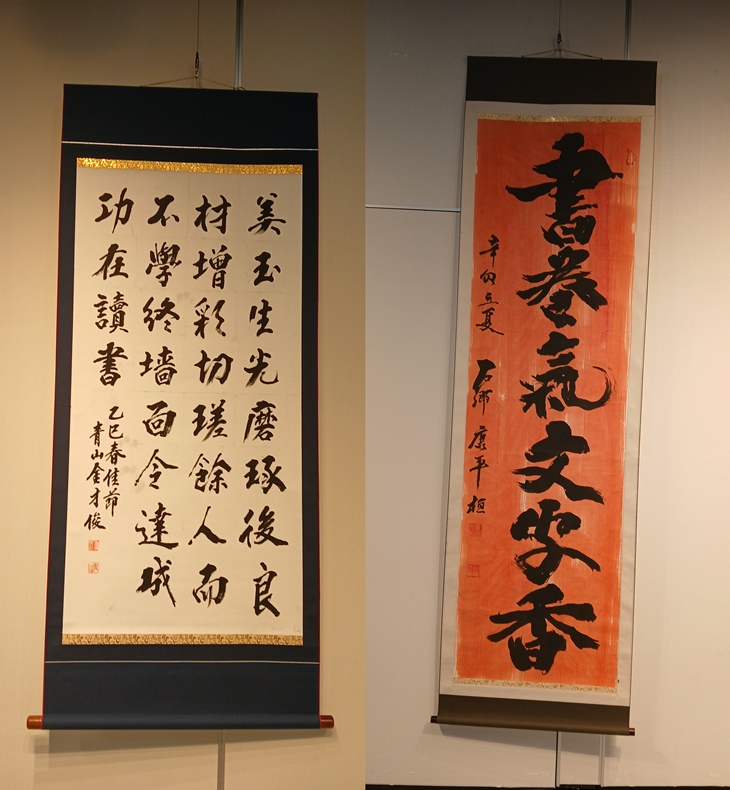 美玉生光磨琢後良
材增彩切瑳餘人而
不學終墻面令達成
功在讀書
乙巳春佳節
青山金才俊
書卷氣文字香
辛卯立夏 康平